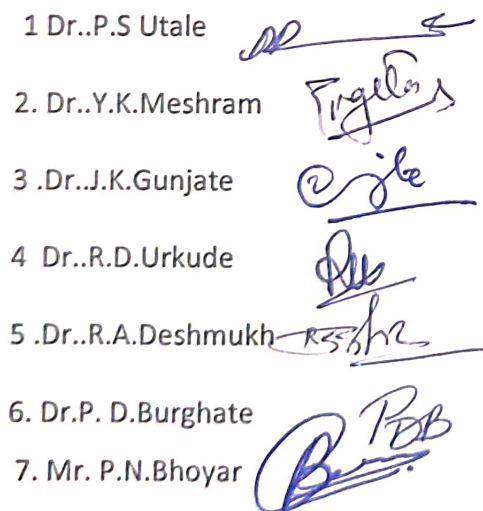 1 Dr..P.S Utale
2. Dr..Y.K.Meshram
3 .Dr..J.K.Gunjate
4 Dr..R.D.Urkude
5 .Dr..R.A.Deshmukh
6. Dr.P. D.Burghate PDB
7. Mr. P.N.Bhoyar